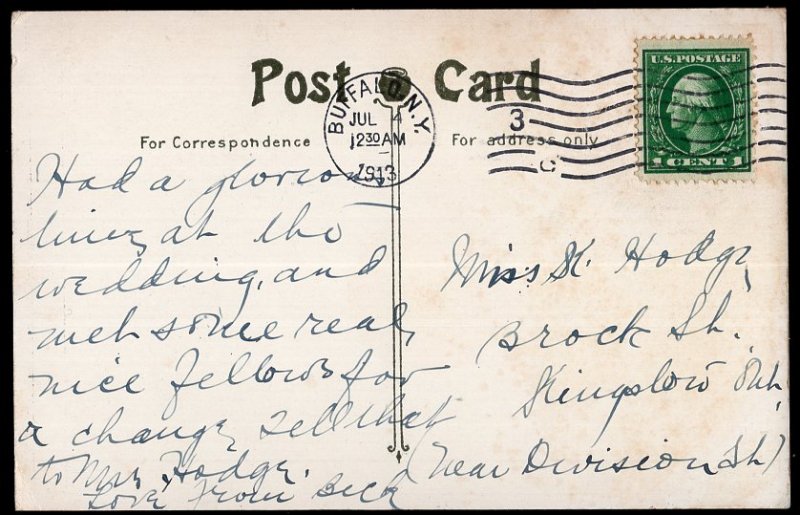 Post Card
For Correspondence
For address only
BUFFALO, N.Y.
JUL 4
12 30 AM
1913
3
C
U.S. POSTAGE
1 CENT 1
Had a glorious
time at the
wedding, and
met some real
nice fellows for
a change, tell that
to Mrs. Hodge.
Love from Beck
Miss K. Hodge
Brock St.
Kingston Ont.
(Near Division St.)